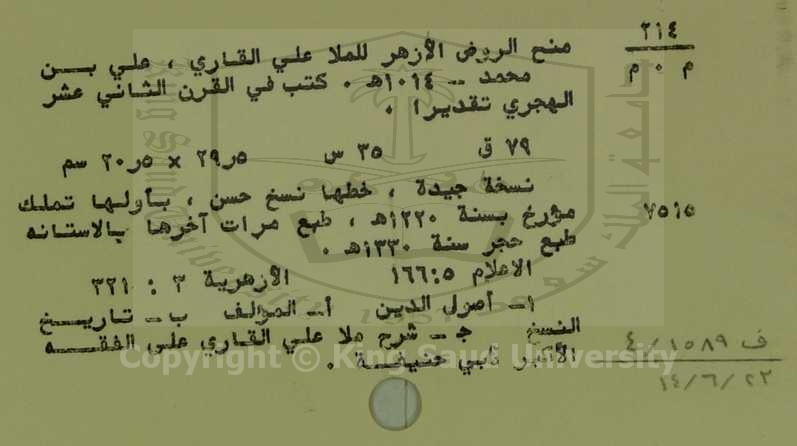 ٢١٤
م ٠ م
منح الروض الأزهر للملا علي القاري ، علي بن
محمد - ١٠١٤هـ . كتب في القرن الثاني عشر
الهجري تقديرا .
٧٩ ق ٣٥ س ٢٩ر٥ × ٢٠ر٥ سم
نسخة جيدة ، خطها نسخ حسن ، بأولها تملك
٧٥١٥
مؤرخ بسنة ١٢٢٠هـ ، طبع مرات آخرها بالاستانه
طبع حجر سنة ١٣٣٠هـ .
الاعلام ١٦٦:٥ الأزهرية ٣ : ٣٢١
١- أصول الدين أ- المؤلف ب- تاريخ
النسخ ج- شرح ملا علي القاري على الفقه
الأكبر لأبي حنيفة .
ف ١٥٨٩/٤
١٤/٦/٢٣
Copyright © King Saud University